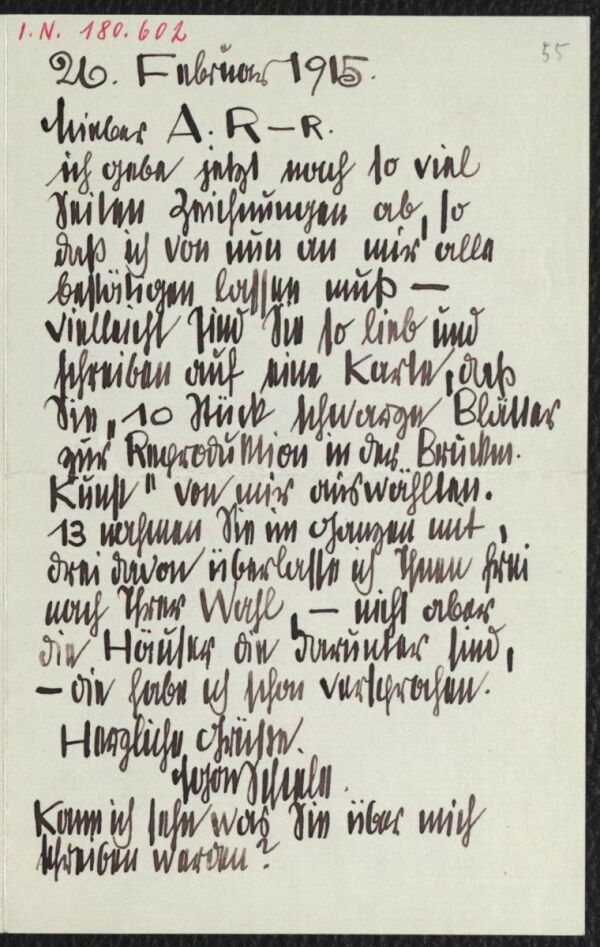 I.N. 180.602
55
26. Februar 1915.
Lieber A. R–R.
ich gebe jetzt nach so viel
Seiten Zeichnungen ab, so
daß ich von nun an mir alle
bestätigen lassen muß —
vielleicht sind Sie so lieb und
schreiben auf eine Karte, daß
Sie „10 Stück schwarze Blätter
zur Reproduktion in der Bruckm.
Kunst" von mir auswählten.
13 nahmen Sie im Ganzen mit,
drei davon überlasse ich Ihnen frei
nach Ihrer Wahl, — nicht aber
die Häuser die darunter sind,
— die habe ich schon versprochen.
Herzliche Grüsse.
Egon Schiele.
Kann ich sehn was Sie über mich
schreiben werden?